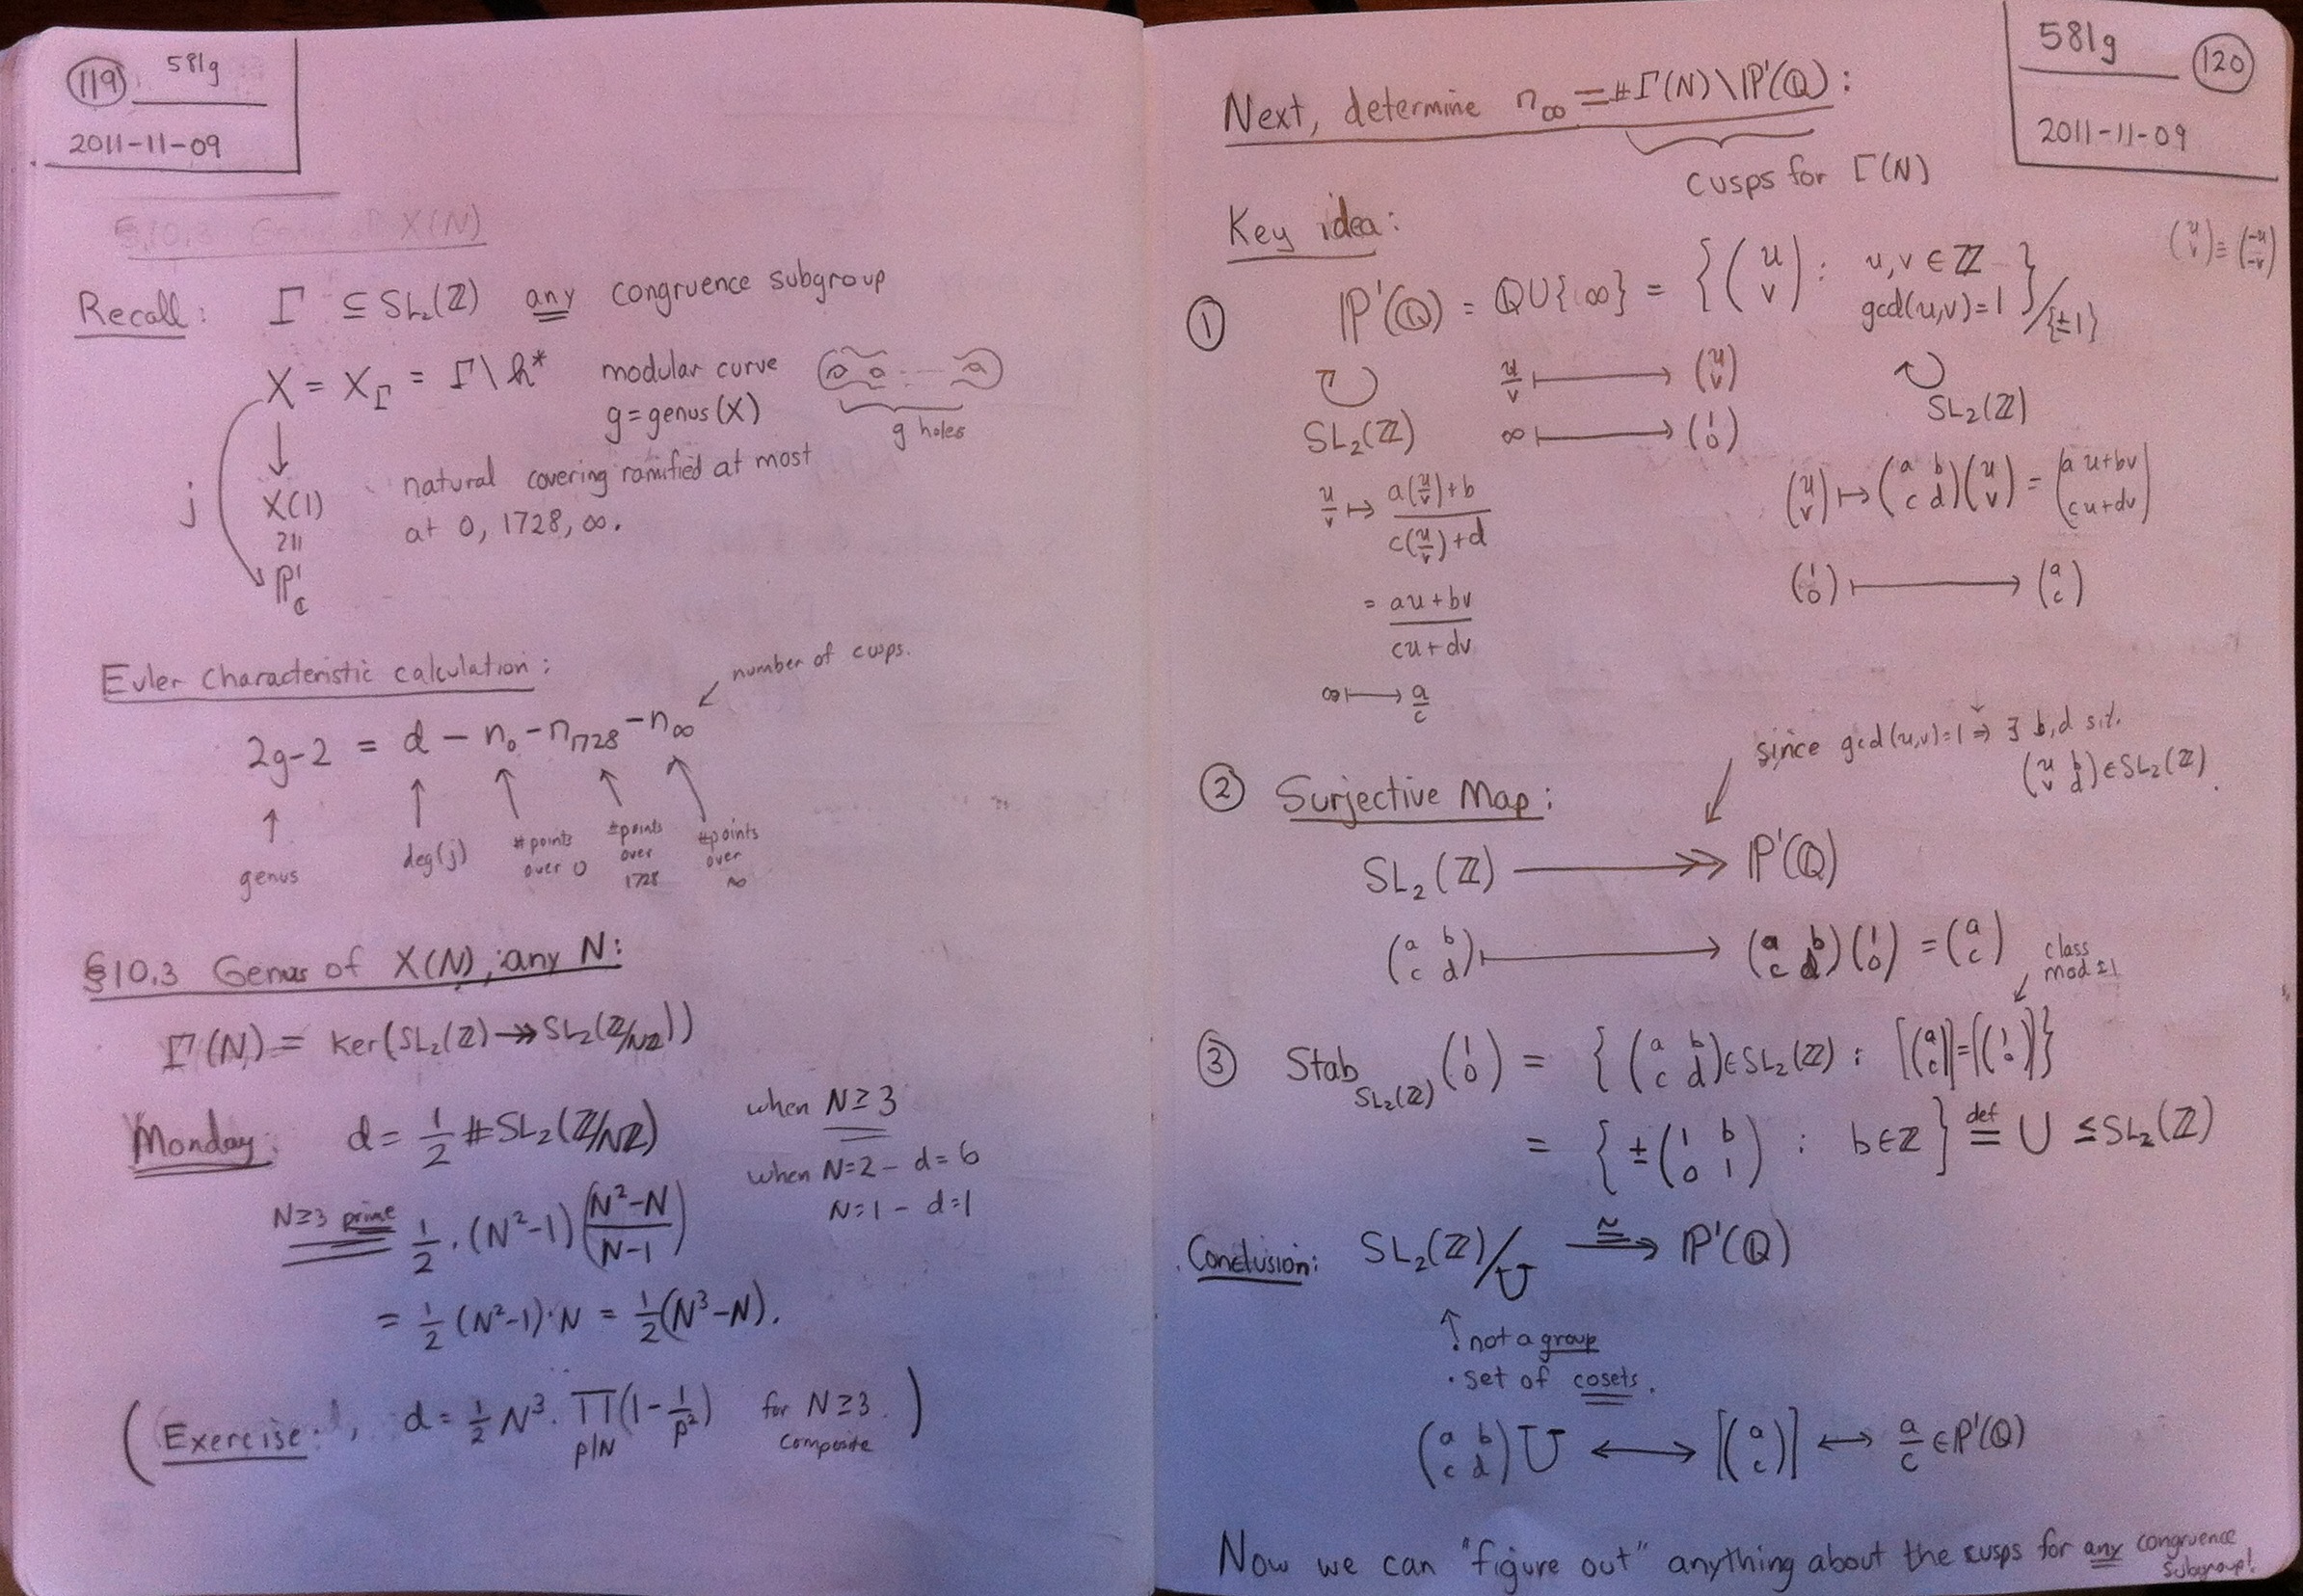 119 581g
2011-11-09
§10.3 Genus of X(N)
Recall: Γ ⊆ SL₂(ℤ) any congruence subgroup
X = X_Γ = Γ\h* modular curve
g = genus(X)
g holes
j
X(1)
≅
ℙ¹_ℂ
natural covering ramified at most
at 0, 1728, ∞.
Euler characteristic calculation:
number of cusps.
2g-2 = d - n₀ - n₁₇₂₈ - n_∞
genus
deg(j)
#points over 0
#points over 1728
#points over ∞
§10.3 Genus of X(N), any N:
Γ(N) = ker(SL₂(ℤ) ↠ SL₂(ℤ/Nℤ))
Monday: d = 1/2 #SL₂(ℤ/Nℤ) when N≥3
when N=2 - d=6
N=1 - d=1
N≥3 prime 1/2 · (N²-1) ((N²-N)/(N-1))
= 1/2 (N²-1)·N = 1/2 (N³-N).
(Exercise: , d = 1/2 N³ · ∏_{p|N} (1 - 1/p²) for N≥3 composite.)
581g 120
2011-11-09
Next, determine n_∞ = #Γ(N)\ℙ¹(ℚ):
cusps for Γ(N)
Key idea:
(u v) ≡ (-u -v)
① ℙ¹(ℚ) = ℚ∪{∞} = {(u v) : u,v ∈ ℤ gcd(u,v)=1}/{±1}
↻ u/v ⟼ (u v) ↻
SL₂(ℤ) ∞ ⟼ (1 0) SL₂(ℤ)
u/v ↦ (a(u/v)+b)/(c(u/v)+d)
= (au+bv)/(cu+dv)
∞ ⟼ a/c
(u v) ↦ (a b c d)(u v) = (au+bv cu+dv)
(1 0) ⟼ (a c)
since gcd(u,v)=1 ⇒ ∃ b,d s.t.
(u b v d) ∈ SL₂(ℤ).
② Surjective Map:
SL₂(ℤ) ↠ ℙ¹(ℚ)
(a b c d) ⟼ (a b c d)(1 0) = (a c)
class
mod ±1
③ Stab_{SL₂(ℤ)} (1 0) = {(a b c d) ∈ SL₂(ℤ) : [(a c)] = [(1 0)]}
= {±(1 b 0 1) : b∈ℤ} def= U ≤ SL₂(ℤ)
Conclusion: SL₂(ℤ)/U ≅→ ℙ¹(ℚ)
↑ · not a group
· set of cosets.
(a b c d)U ↔ [(a c)] ↔ a/c ∈ ℙ¹(ℚ)
Now we can "figure out" anything about the cusps for any congruence
subgroup!